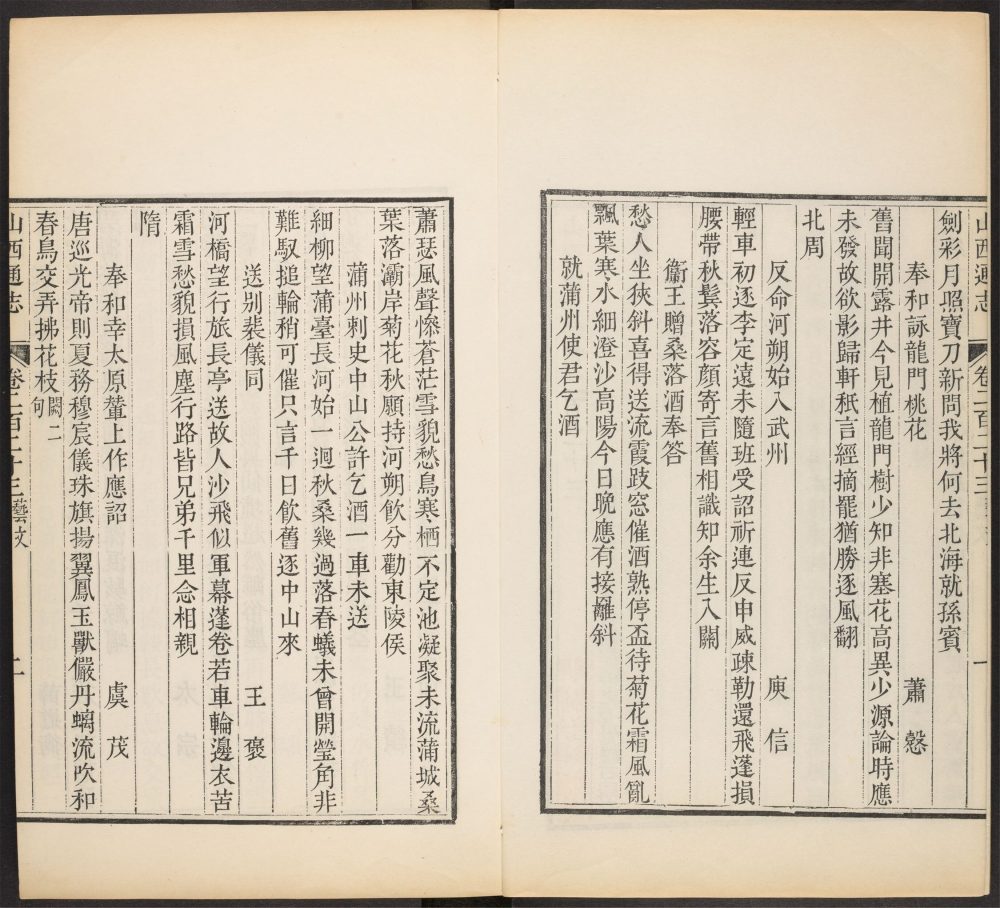 山西通志 卷二百二十三 一
劍彩月照寶刀新問我將何去北海就孫賓
奉和詠龍門桃花 蕭慤
舊聞開露井今見植龍門樹少知非塞花高異少源論時應
未發故欲影歸軒秖言經摘罷猶勝逐風翻
北周
反命河朔始入武州 庾信
輕車初逐李定遠未隨班受詔祈連反申威疎勒還飛蓬損
腰帶秋鬂落容顏寄言舊相識知余生入關
衞王贈桑落酒奉答
愁人坐狹斜喜得送流霞跂窓催酒熟停盃待菊花霜風亂
飄葉寒水細澄沙高陽今日晚應有接䍦斜
就蒲州使君乞酒
蕭瑟風聲慘蒼茫雪貌愁鳥寒栖不定池凝聚未流蒲城桑
葉落灞岸菊花秋願持河朔飲分勸東陵侯
蒲州刺史中山公許乞酒一車未送
細柳望蒲臺長河始一迴秋桑幾過落春蟻未曾開瑩角非
難馭搥輪稍可催只言千日飲舊逐中山來
送别裴儀同 王褒
河橋望行旅長亭送故人沙飛似軍幕蓬卷若車輪邊衣苦
霜雪愁貌損風塵行路皆兄弟千里念相親
隋
奉和幸太原輦上作應詔 虞茂
唐巡光帝則夏務穆宸儀珠旗揚翼鳳玉獸儼丹螭流吹和
春鳥交弄拂花枝闕二句
山西通志 卷二百二十三藝文 二